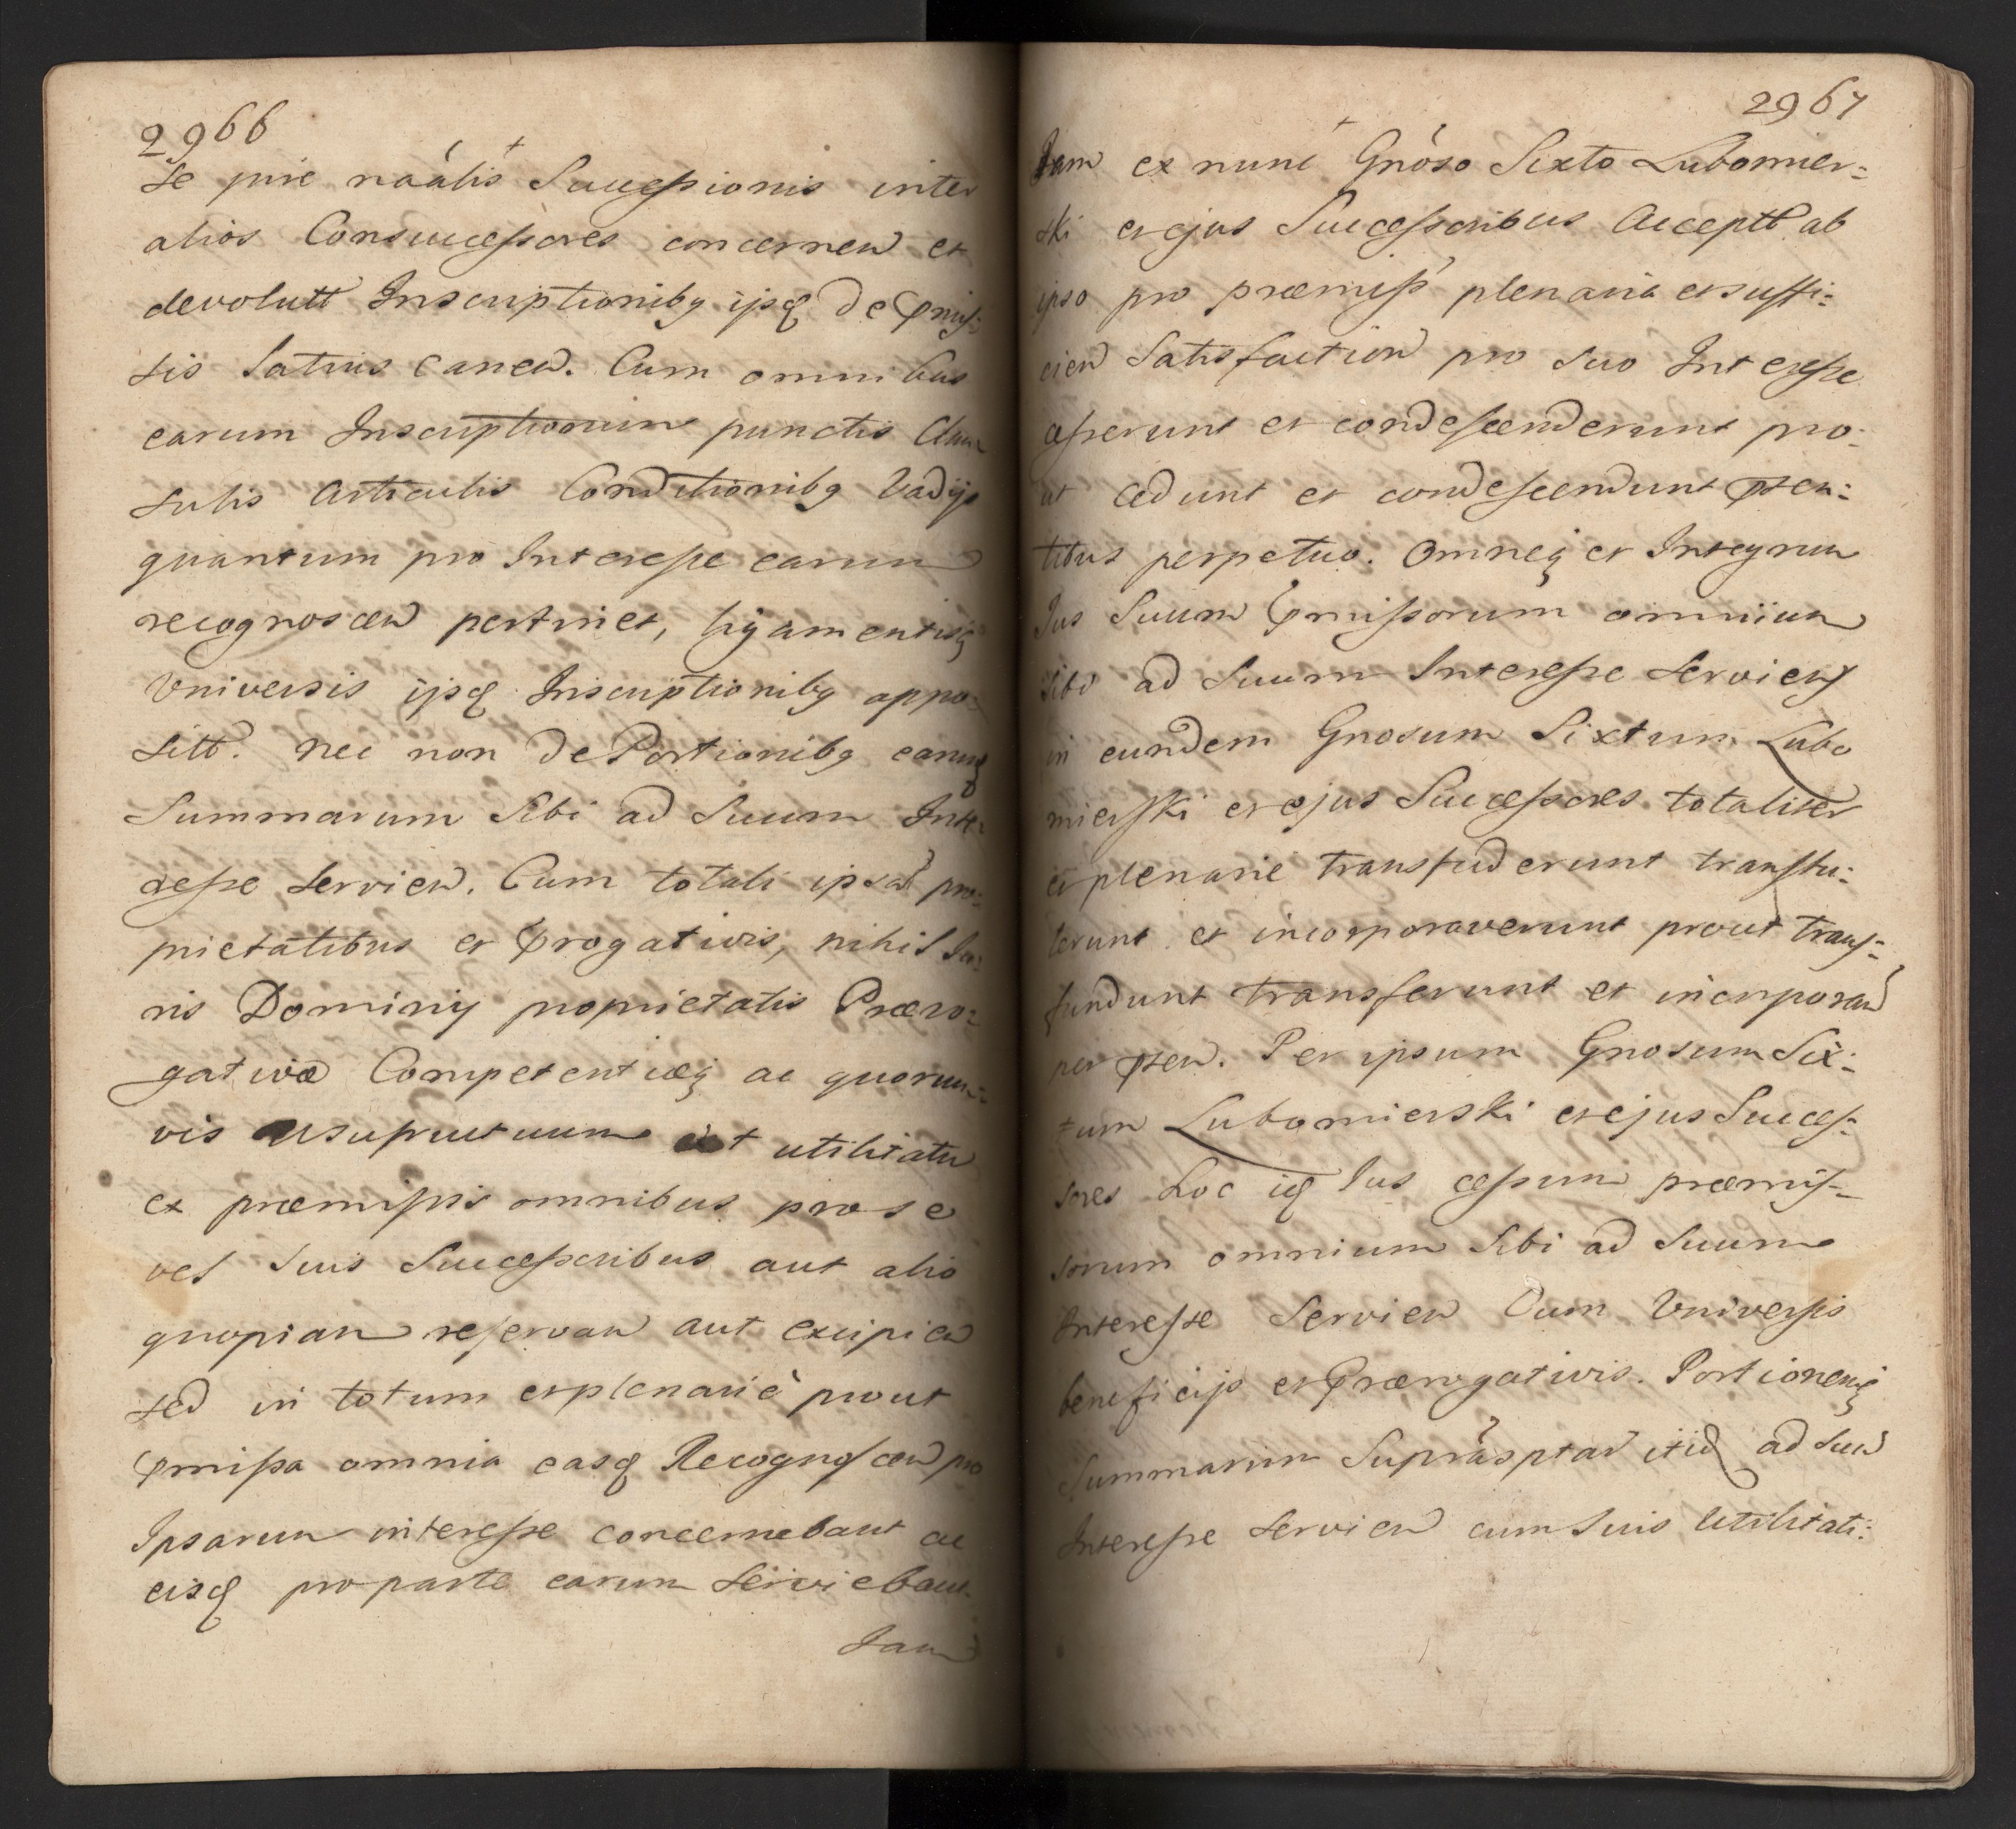 2966
se jure náális Successionis inter
alios Consuccessores concernen et
devolutt Inscriptionibq ijsq de Pmis=
sis Latius Canen. Cum omnibus
earum Inscriptionum punctis Clau
sulis Articulis Conditionibq Vadijs
quantum pro Interesse earum
recognoscen pertinet, ligamentisq
Universis ijsq Inscriptionibq appo=
sitt. nec non de Portionibq earumq
Summarum Sibi ad Suum Inte=
resse servien. Cum totali ipsar pro=
prietatibus et Progativis, nihil Ju=
ris Dominij proprietatis Præro=
gativæ Competentiæq ac quorum=
vis usufructuum et utilitatu
ex præmissis omnibus pro se
vel suis Successoribus aut alio
quopiam reservan aut excipien
sed in totum et plenarié prout
Pmissa omnia easq Recognoscen pro
Ipsarum interesse concernebant ac
eisq pro parte earum serviebant.
Jam
2967
Jam ex nunc Gnóso Sixto Lubomier=
ski et ejus Successoribus Acceptt ab
ipso pro præmiss plenaria et suffi=
cien Satisfaction pro suo Interesse
cesserunt et condescenderunt pro=
ut cedunt et condescendunt psen=
tibus perpetuo. Omneq et Integrum
Jus Suum Pmissorum omnium
sibi ad Suum Interesse servien
in eundem Gnosum Sixtum Lubo
mierski et ejus Successores totaliter
et plenarie transfuderunt transtu=
lerunt et incorporaverunt prout trans=
fundunt transferunt et incorporan
per psen. Per ipsum Gnosum Six=
tum Lubomierski et ejus Succes=
sores hoc iq Jus cessum præmis=
sorum omnium Sibi ad Suum
Interesse Servien Cum Universis
beneficijs et Prærogativis. Portionemq
Summarum Suprasptar itiq ad suu
Interesse servien cum suis Utilitati=